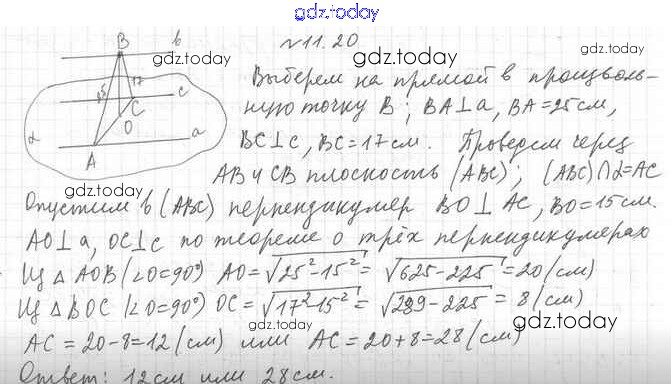 gdz.today
№11.20
gdz.today gdz.today
B b
Выберем на прямой b произволь-
ную точку B; BA⊥a, BA=25см,
BC⊥c, BC=17см. Проведем через
AB и CB плоскость (ABC); (ABC)∩α=AC
25 17 c
C
O
α a
A
gdz.today gdz.today
Опустим в (ABC) перпендикуляр BO⊥AC, BO=15см.
AO⊥a, OC⊥c по теореме о трёх перпендикулярах
Из △AOB (∠O=90°) AO=√25²-15²=√625-225=20(см)
Из △BOC (∠O=90°) OC=√17²-15²=√289-225=8(см)
gdz.today gdz.today
AC=20-8=12(см) или AC=20+8=28(см)
Ответ: 12см или 28см.